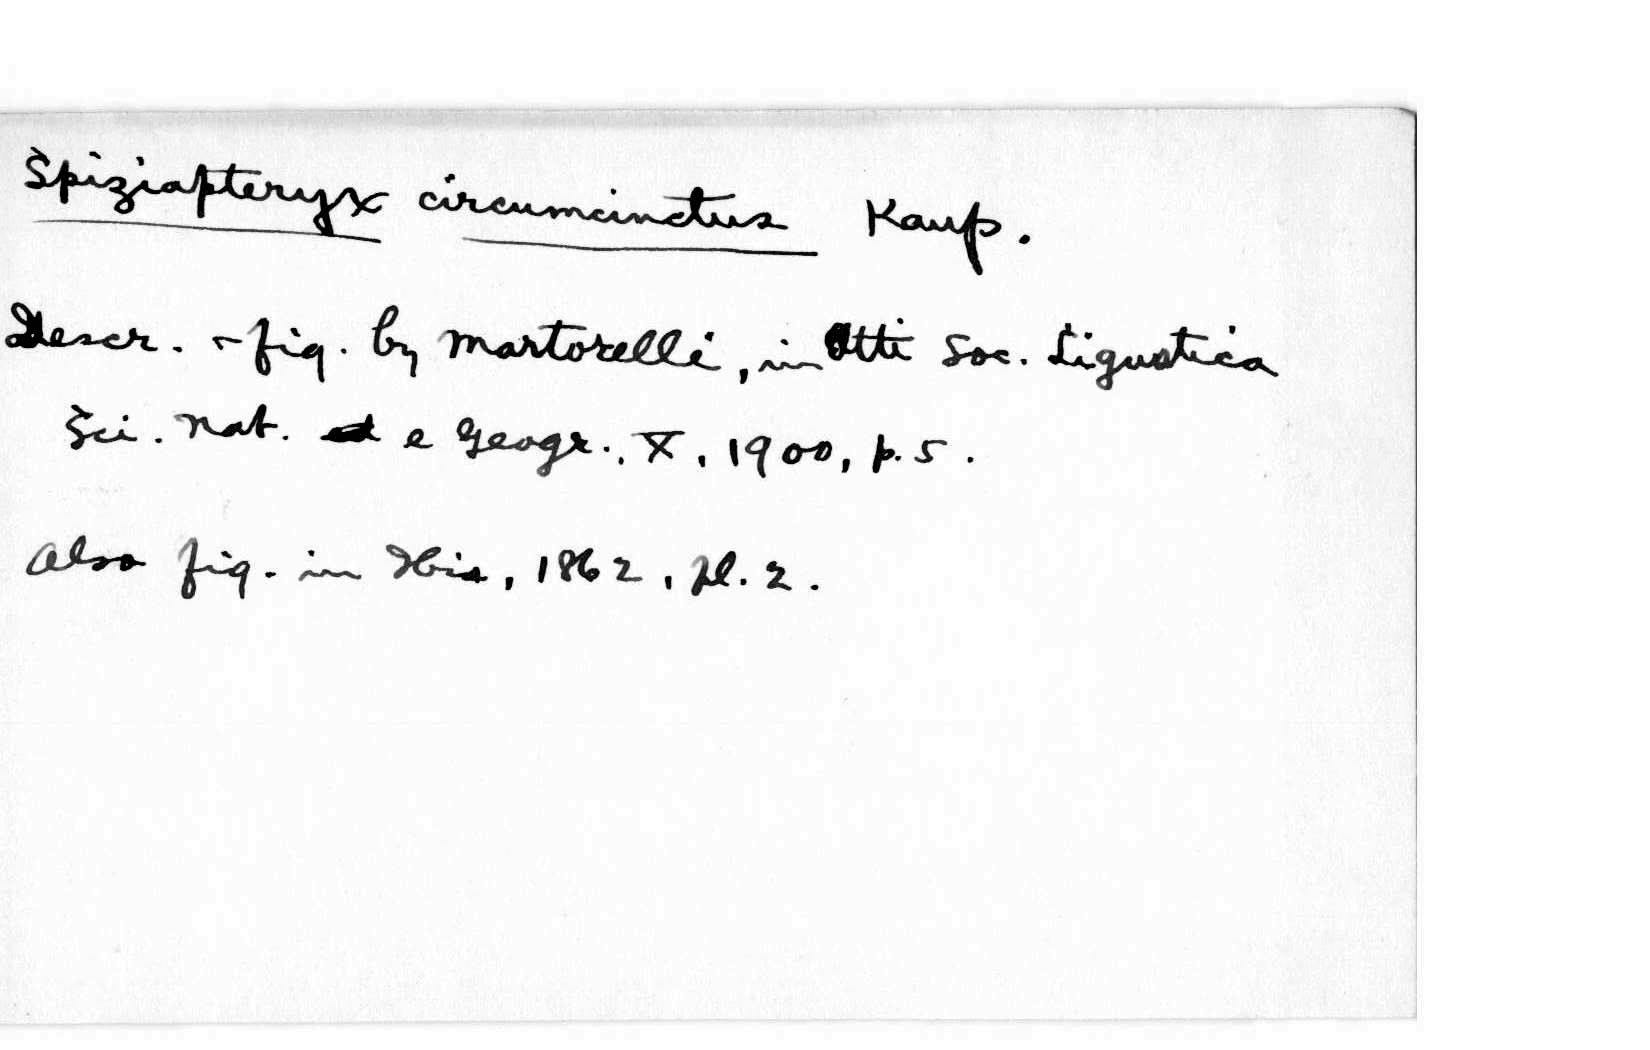 Spiziapteryx circumcinctus Kaup.
Descr. & fig. by Martorelli, in Atti Soc. Ligustica
Sci. Nat. e Geogr., X, 1900, p. 5.
Also fig. in Ibis, 1862, pl. 2.